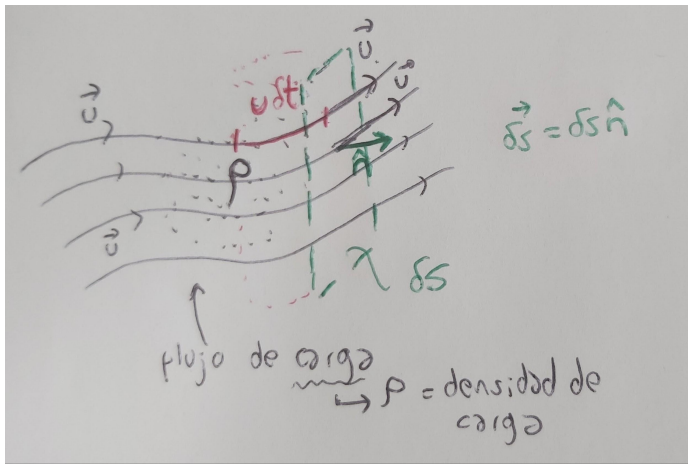 u⃗
u⃗
uδt
u⃗
u⃗
ρ
n̂
δs⃗ = δs n̂
u⃗
δs
flujo de carga
→ ρ = densidad de
carga